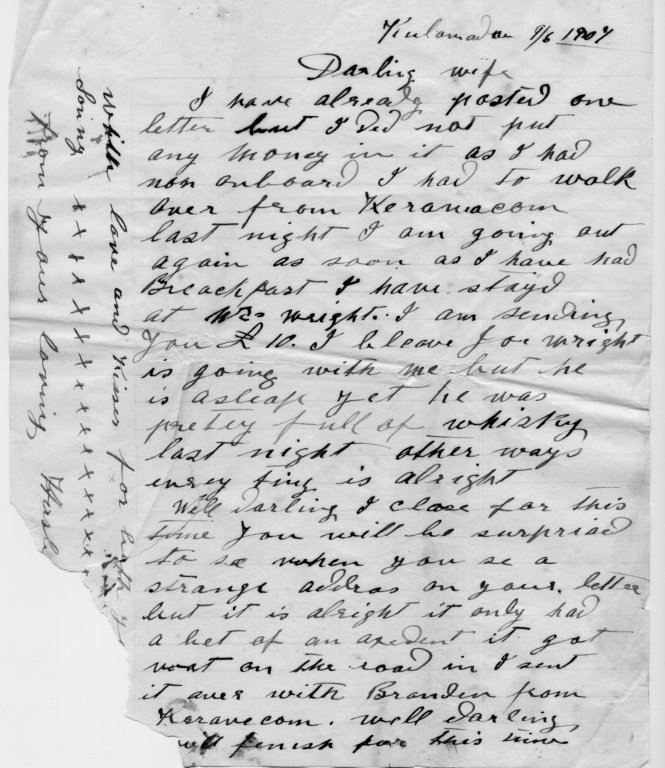 Kulamadau 9/6 1907
Darling wife
I have already posted one
letter but I ded not put
any money in it as I had
non onboard I had to walk
over from Keravacom
last night I am going out
again as soon as I have had
Breackfast I have stayd
at Mrs wright. I am sending
you £ 10. I bleave Joe wright
is going with me but he
is asleap yet he was
pretey full of whisky
last night other ways
evrey ting is alright
Well darling I close for this
time you will be surprised
to se when you se a
strange addras on your letter
but it is alright it only had
a bet of an axedent it got
on the road in I sent
it over with Branden from
Keravecom. well darling
will finish for this time
With love and kisses for both
x x x x x x x x x x x x x x
from your loving